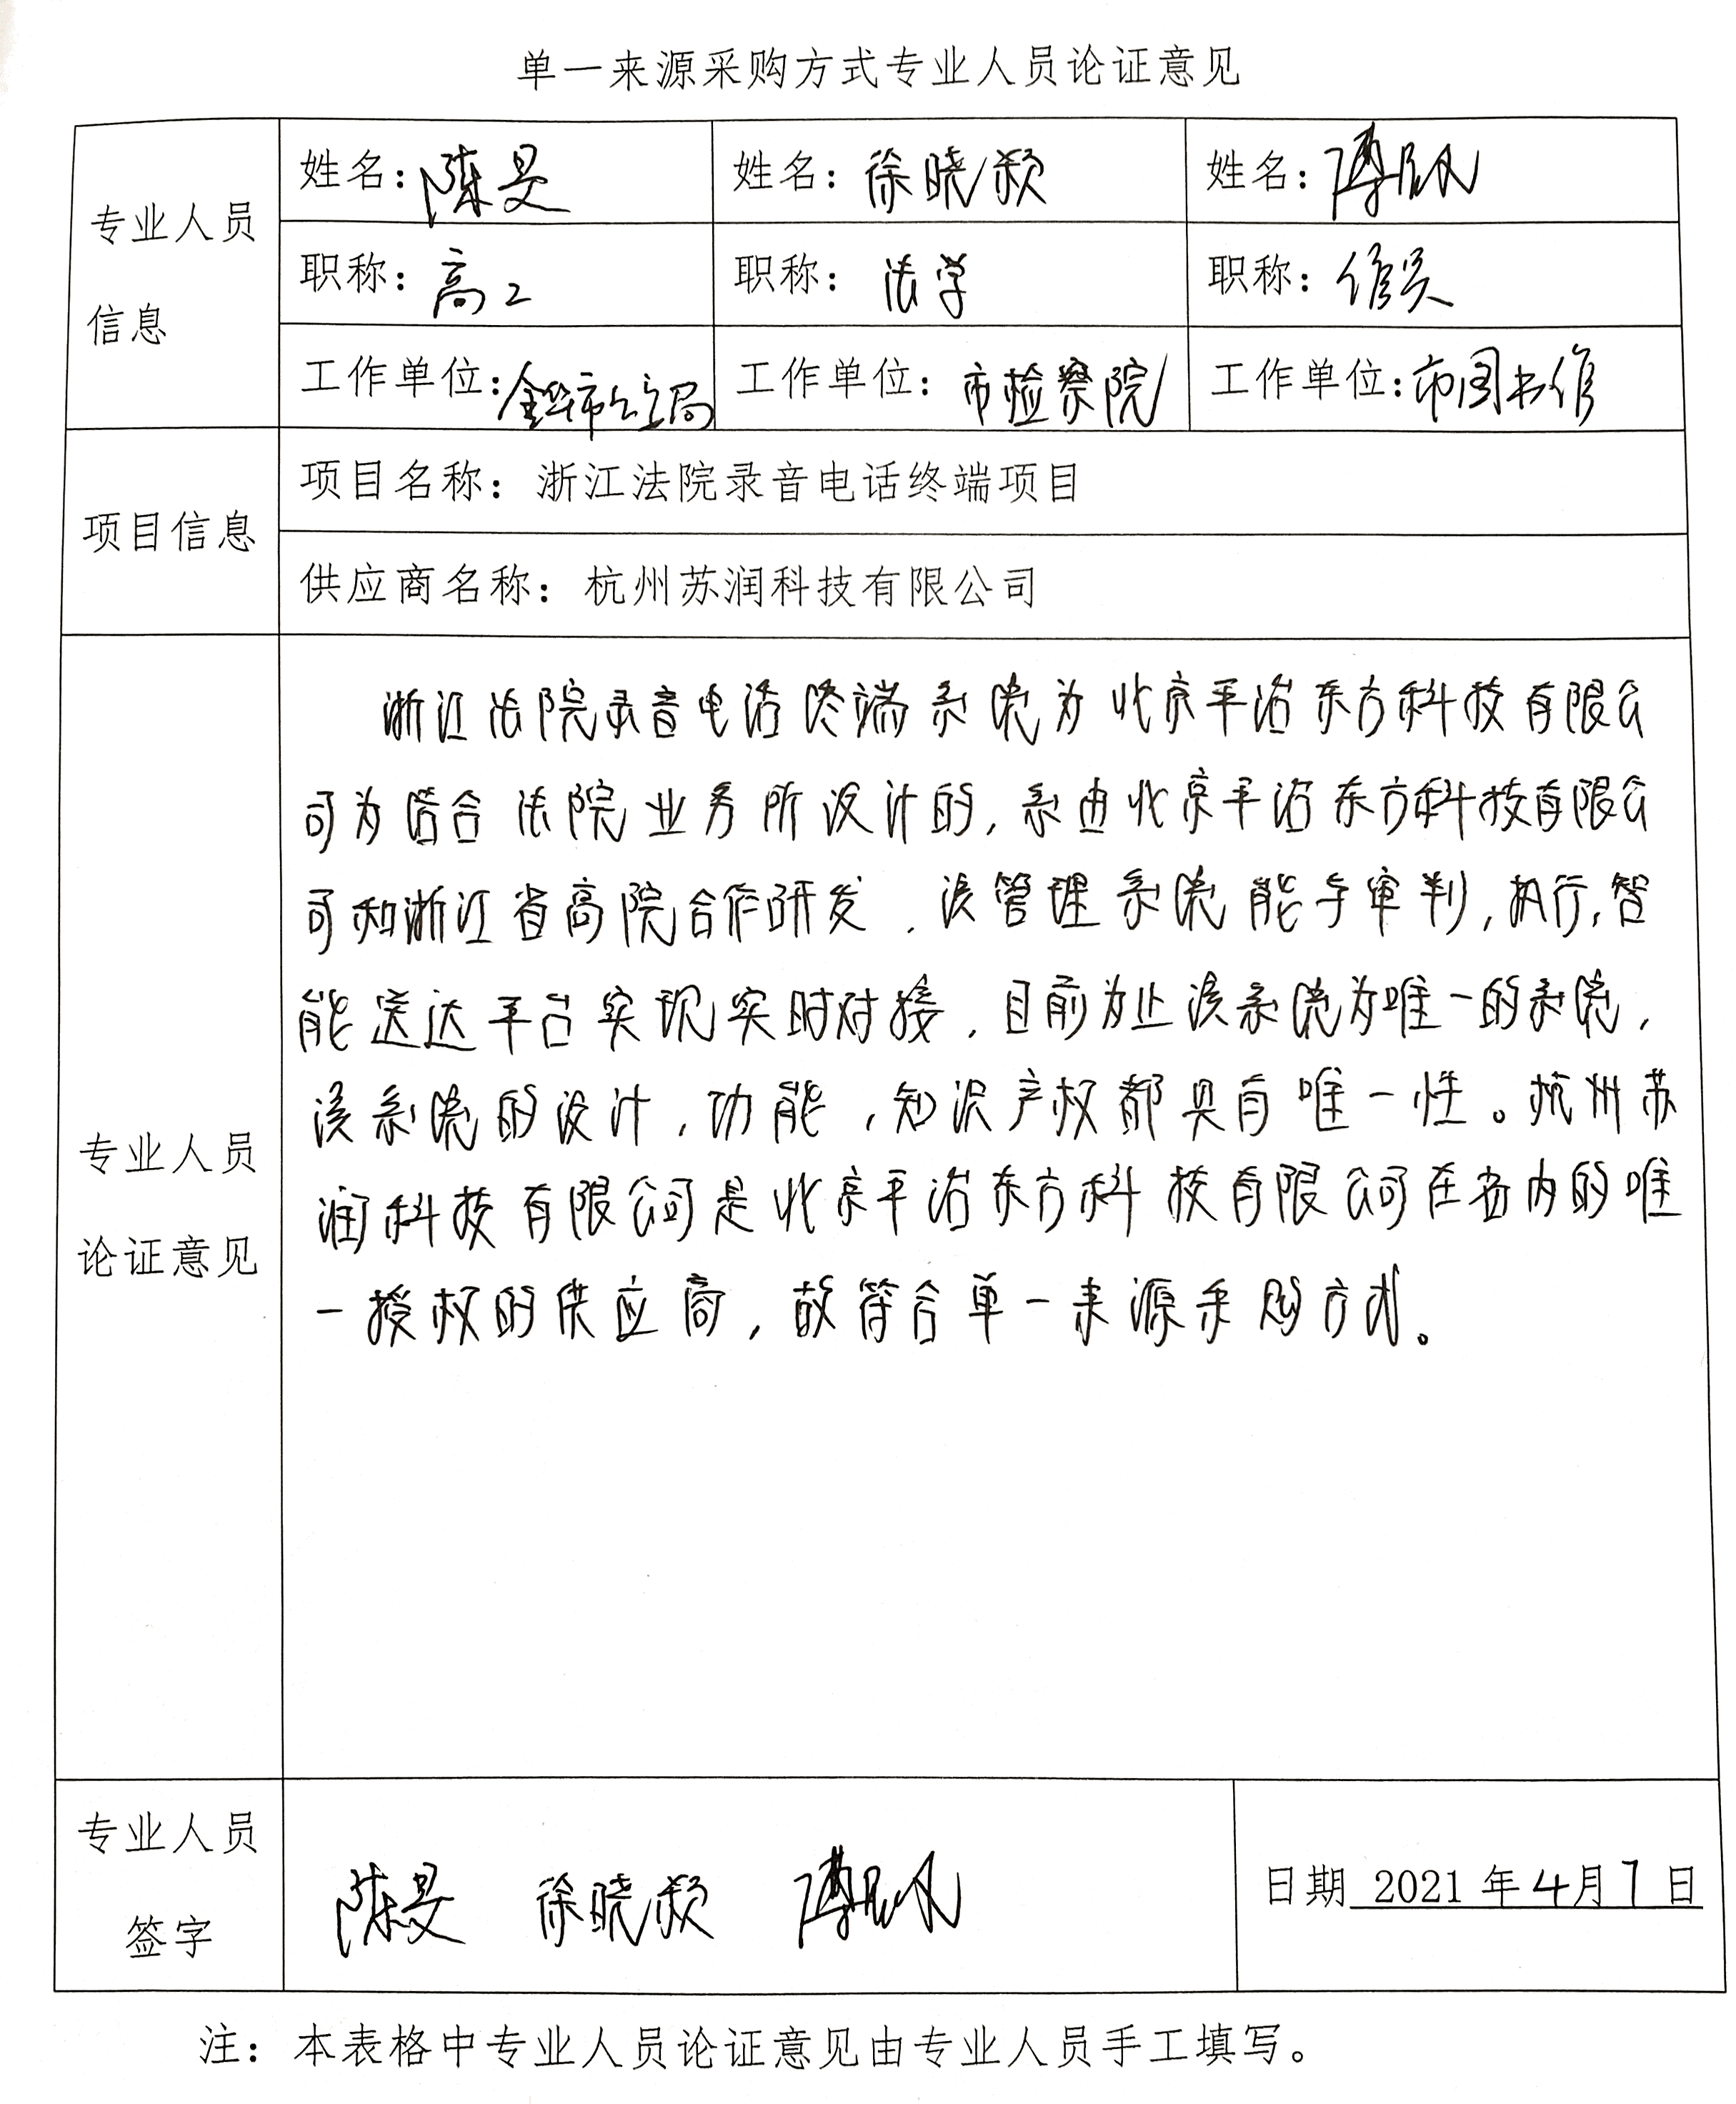 单一来源采购方式专业人员论证意见
专业人员
信息
姓名：陈旻
姓名：徐晓颖
姓名：傅
职称：高工
职称：法学
职称：馆员
工作单位：金华市公安局
工作单位：市检察院
工作单位：市图书馆
项目信息
项目名称：浙江法院录音电话终端项目
供应商名称：杭州苏润科技有限公司
专业人员
论证意见
浙江法院录音电话终端系统为北京平治东方科技有限公
司为结合法院业务所设计的，系由北京平治东方科技有限公
司和浙江省高院合作研发，该管理系统能与审判，执行，智
能送达平台实现实时对接，目前为止该系统为唯一的系统，
该系统的设计，功能，知识产权都具有唯一性。杭州苏
润科技有限公司是北京平治东方科技有限公司在省内的唯
一授权的供应商，故符合单一来源采购方式。
专业人员
签字
陈旻 徐晓颖 傅
日期 2021年4月7日
注：本表格中专业人员论证意见由专业人员手工填写。